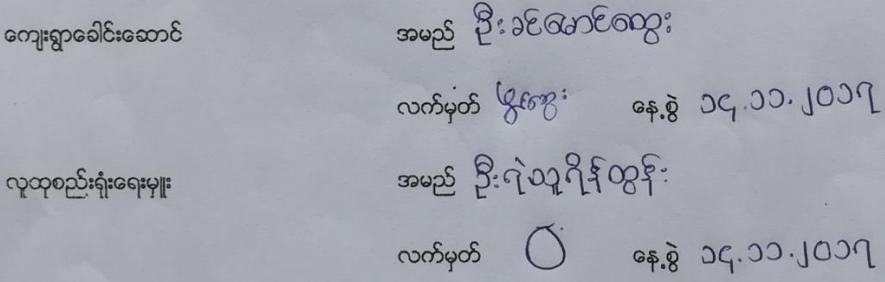 ကျေးရွာခေါင်းဆောင် အမည် ဦးခင်မောင်ထွေး
လက်မှတ် နေ့စွဲ ၁၄.၁၁.၂၀၁၇
လူထုစည်းရုံးရေးမှူး အမည် ဦးရဲသူရိန်ထွန်း
လက်မှတ် နေ့စွဲ ၁၄.၁၁.၂၀၁၇